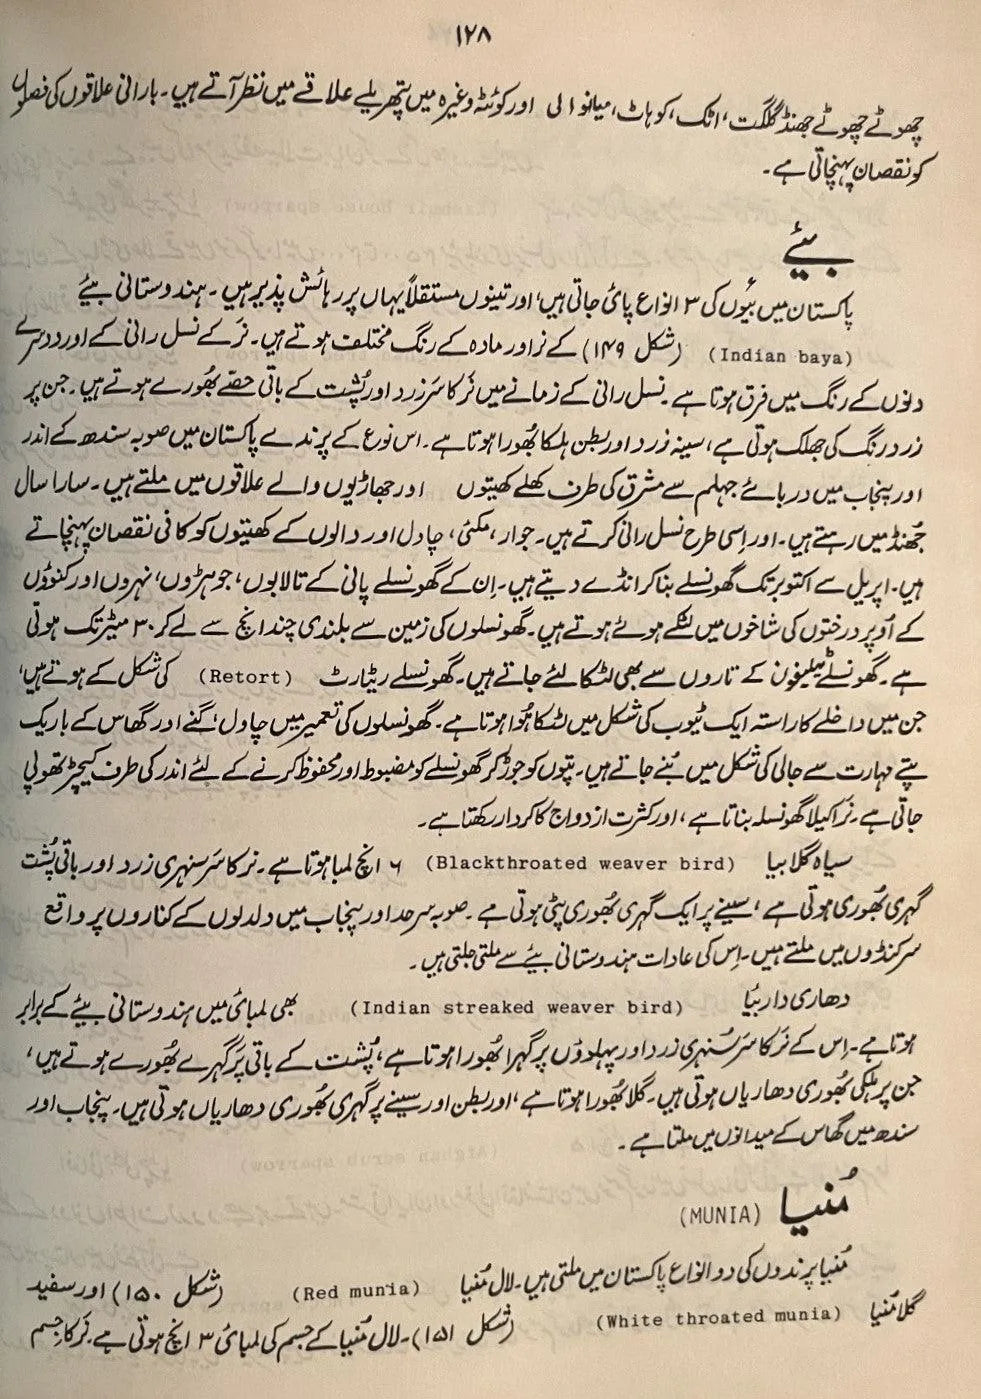 ۱۲۸
چھوٹے چھوٹے جھنڈ گلگت، اٹک، کوہاٹ، میانوالی اور کوئٹہ وغیرہ میں پتھریلے علاقے میں نظر آتے ہیں۔ بارانی علاقوں کی فصلوں
کو نقصان پہنچاتی ہے۔
بیئے
پاکستان میں بیّوں کی ۳ انواع پائی جاتی ہیں، اور تینوں مستقلاً یہاں پر رہائش پذیر ہیں۔ ہندوستانی بیئے
(Indian baya) (شکل ۱۴۹) کے نر اور مادہ کے رنگ مختلف ہوتے ہیں۔ نر کے نسل رانی کے اور دوسرے
دنوں کے رنگ میں فرق ہوتا ہے۔ نسل رانی کے زمانے میں نَر کا سَر زرد اور پُشت کے باقی حصّے بھُورے ہوتے ہیں۔ جن پر
زرد رنگ کی جھلک ہوتی ہے، سینہ زرد اور بطن ہلکا بھُورا ہوتا ہے۔ اس نوع کے پرندے پاکستان میں صوبہ سندھ کے اندر
اور پنجاب میں دریائے جہلم سے مشرق کی طرف کھلے کھیتوں اور جھاڑیوں والے علاقوں میں ملتے ہیں۔ سارا سال
جُھنڈ میں رہتے ہیں۔ اور اِسی طرح نسل رانی کرتے ہیں۔ جوار، مکئی، چاول اور دالوں کے کھیتوں کو کافی نقصان پہنچاتے
ہیں۔ اپریل سے اکتوبر تک گھونسلے بنا کر انڈے دیتے ہیں۔ اِن کے گھونسلے پانی کے تالابوں، جوہڑوں، نہروں اور کنوؤں
کے اُوپر درختوں کی شاخوں میں لٹکے ہوئے ہوتے ہیں۔ گھونسلوں کی زمین سے بلندی چند انچ سے لے کر ۳۰ میٹر تک ہوتی
ہے۔ گھونسلے ٹیلیفون کے تاروں سے بھی لٹکا لئے جاتے ہیں۔ گھونسلے ریٹارٹ (Retort) کی شکل کے ہوتے ہیں،
جن میں داخلے کا راستہ ایک ٹیوب کی شکل میں لٹکا ہُوا ہوتا ہے۔ گھونسلوں کی تعمیر میں چاول، گنے اور گھاس کے باریک
پتے مہارت سے جالی کی شکل میں بُنے جاتے ہیں۔ پتوں کو جوڑ کر گھونسلے کو مضبوط اور محفوظ کرنے کے لئے اندر کی طرف کیچڑ تھوپی
جاتی ہے۔ نر اکیلا گھونسلہ بناتا ہے، اور کثرت ازدواج کا کردار رکھتا ہے۔
سیاہ گلا بیا (Blackthroated weaver bird) ۶ انچ لمبا ہوتا ہے۔ نر کا سَر سنہری زرد اور باقی پُشت
گہری بھُوری ہوتی ہے، سینے پر ایک گہری بھُوری پٹی ہوتی ہے۔ صوبہ سرحد اور پنجاب میں دلدلوں کے کناروں پر واقع
سرکنڈوں میں ملتے ہیں۔ اِس کی عادات ہندوستانی بیئے سے ملتی جلتی ہیں۔
دھاری دار بیّا (Indian streaked weaver bird) بھی لمبائی میں ہندوستانی بیئے کے برابر
ہوتا ہے۔ اِس کے نَر کا سَر سُنہری زرد اور پہلوؤں پر گہرا بھُورا ہوتا ہے، پُشت کے باقی پَر گہرے بھُورے ہوتے ہیں،
جن پر ہلکی بھُوری دھاریاں ہوتی ہیں۔ گلا بھُورا ہوتا ہے، اور بطن اور سینے پر گہری بھُوری دھاریاں ہوتی ہیں۔ پنجاب اور
سندھ میں گھاس کے میدانوں میں ملتا ہے۔
مُنیا (MUNIA)
مُنیا پرندوں کی دو انواع پاکستان میں ملتی ہیں۔ لال مُنیا (Red munia) (شکل ۱۵۰) اور سفید
گلا مُنیا (White throated munia) (شکل ۱۵۱)۔ لال مُنیا کے جسم کی لمبائی ۳ انچ ہوتی ہے۔ نَر کا جِسم